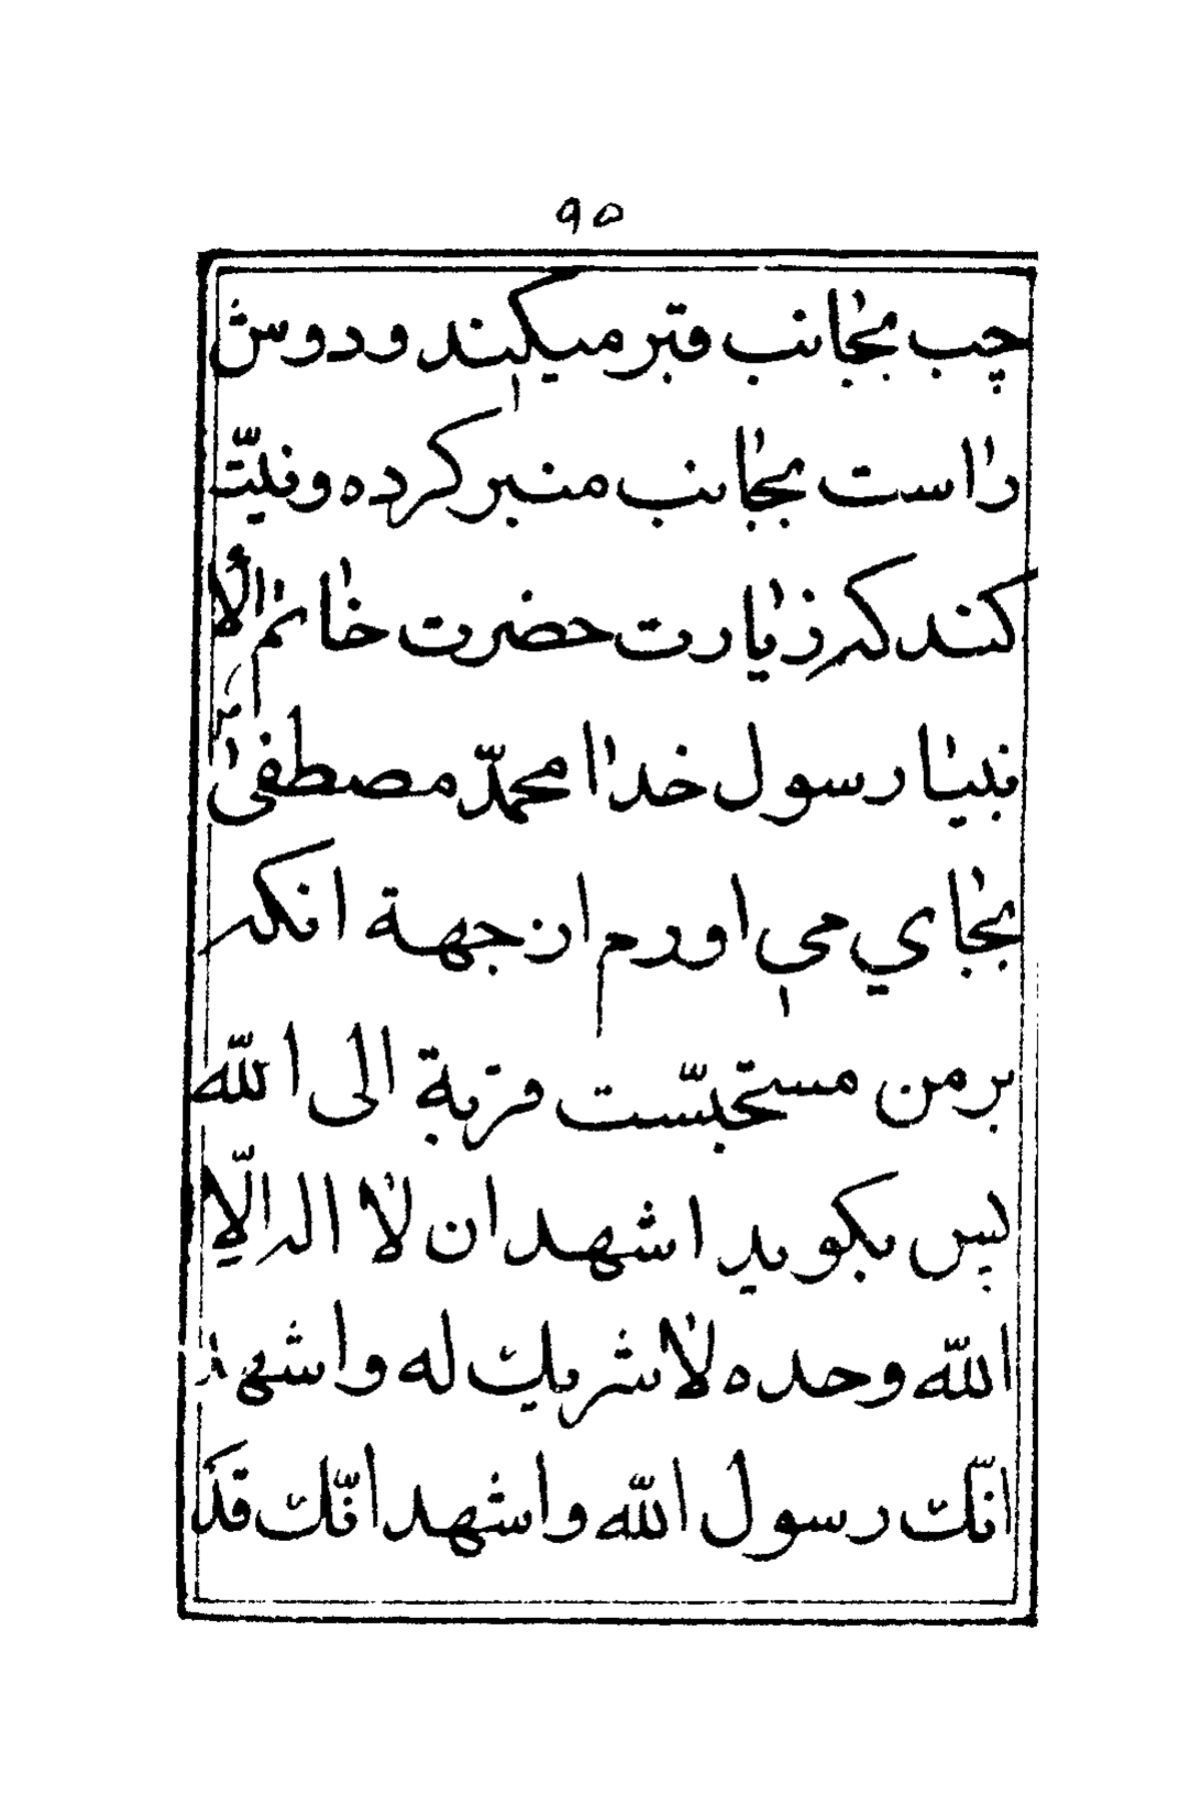 ۹۵
چپ بجانب قبر میکند و دوش
راست بجانب منبر کرده و نیّت
کند که زیارت حضرت خاتم الأ
نبیا رسول خدا محمّد مصطفی ص
بجای می اورم از جهة انکه
بر من مستحبّست قربة الی اللّه
پس بکوید اشهد ان لا اله الّا
اللّه وحده لا شریك له و اشهد
انّك رسول اللّه و اشهد انّك قد